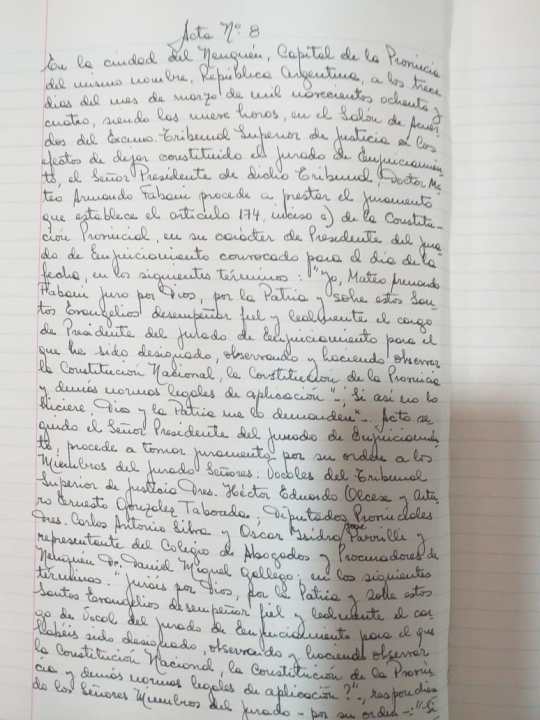 Acta Nº: 8
En la ciudad del Neuquén, Capital de la Provincia
del mismo nombre, República Argentina, a los trece
días del mes de marzo de mil novecientos ochenta y
cuatro, siendo las nueve horas, en el Salón de Acuer-
dos del Excmo. Tribunal Superior de Justicia a los
efectos de dejar constituido el Jurado de Enjuiciamien-
to, el Señor Presidente de dicho Tribunal, Doctor Ma-
teo Armando Fabani procede a prestar el juramento
que establece el artículo 174, inciso a) de la Constitu-
ción Provincial, en su carácter de Presidente del Jura-
do de Enjuiciamiento convocado para el día de la
fecha, en los siguientes términos: "Yo, Mateo Armando
Fabani juro por Dios, por la Patria y sobre estos San-
tos Evangelios desempeñar fiel y lealmente el cargo
de Presidente del Jurado de Enjuiciamiento para el
que he sido designado, observando y haciendo observar
la Constitución Nacional, la Constitución de la Provincia
y demás normas legales de aplicación"-; Si así no lo
hiciere, Dios y la Patria me lo demanden"-. Acto se-
guido el Señor Presidente del Jurado de Enjuiciamien-
to, procede a tomar juramento por su orden a los
Miembros del Jurado Señores: Vocales del Tribunal
Superior de Justicia Dres. Héctor Eduardo Olcese y Artu-
ro Ernesto González Taboada; Diputados Provinciales
Dres. Carlos Antonio Silva y Oscar Isidro José Parrilli y
representante del Colegio de Abogados y Procuradores de
Neuquén Dr. Daniel Miguel Gallego; en los siguientes
términos. "Juráis por Dios, por la Patria y sobre estos
Santos Evangelios desempeñar fiel y lealmente el car-
go de Vocal del Jurado de Enjuiciamiento para el que
habéis sido designado, observando y haciendo observar
la Constitución Nacional, la Constitución de la Provin-
cia y demás normas legales de aplicación?"-, respondien-
do los Señores Miembros del Jurado - por su orden -: "Sí